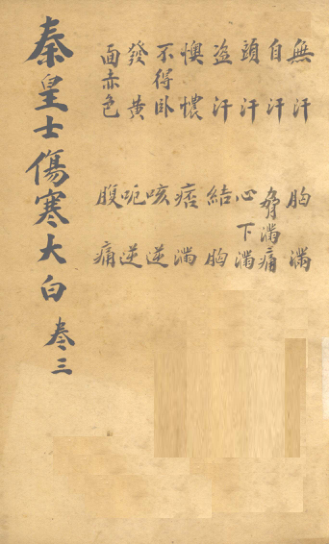 無汗
自汗
頭汗
盗汗
懊憹
不得卧
發黄
面赤色
胸滿
脅滿痛
心下滿
結胸
痞滿
咳逆
呃逆
腹痛
秦皇士傷寒大白 卷三